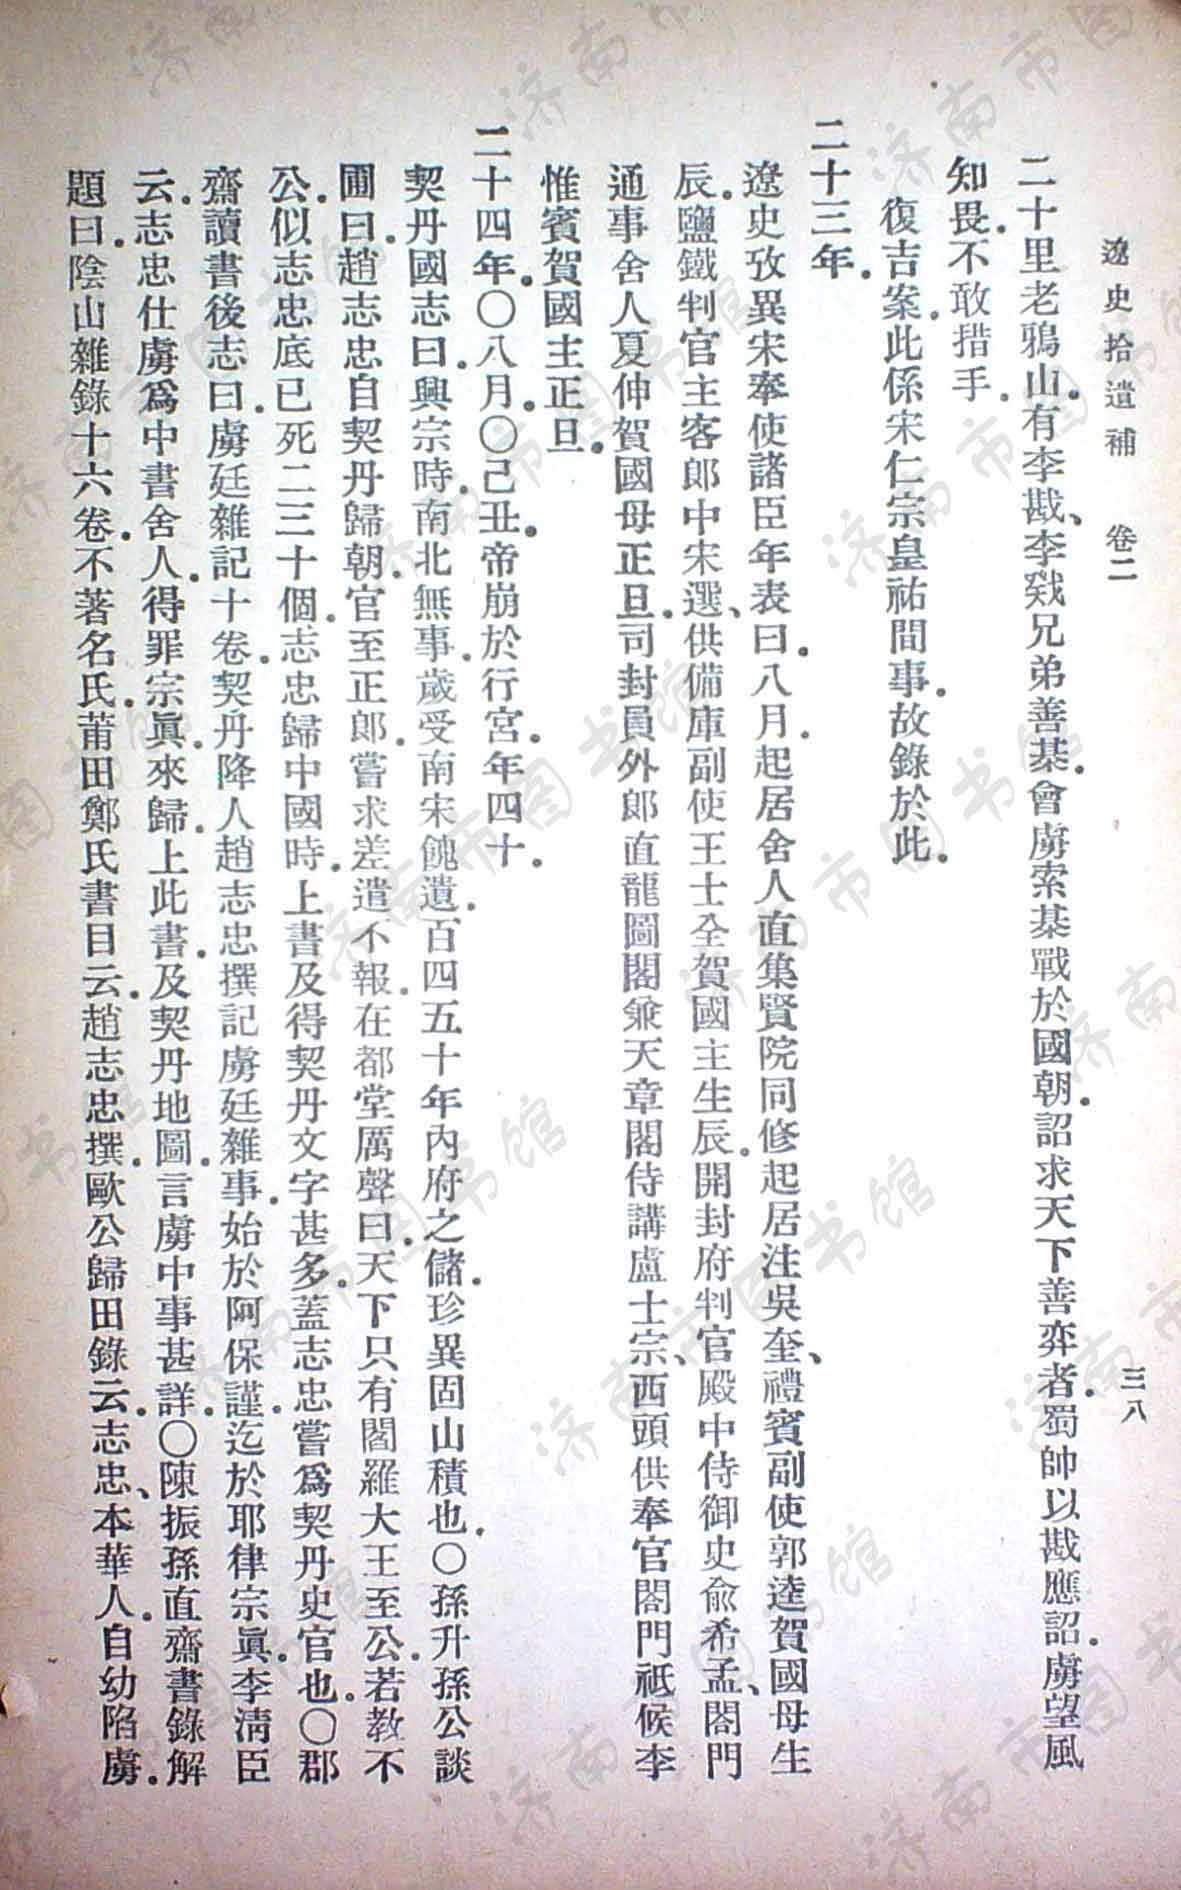 遼史拾遺補　卷二　三八
二十里老鴉山。有李戡、李戣兄弟善棊。會虜索棊戰於國朝。詔求天下善弈者。蜀帥以戡應詔。虜望風
知畏。不敢措手。
復吉案。此係宋仁宗皇祐間事。故錄於此。
二十三年。
遼史攷異宋奉使諸臣年表曰。八月。起居舍人直集賢院同修起居注吳奎、禮賓副使郭逵賀國母生
辰。鹽鐵判官主客郎中宋選、供備庫副使王士全賀國主生辰。開封府判官殿中侍御史俞希孟、閤門
通事舍人夏伸賀國母正旦。司封員外郎直龍圖閣兼天章閣侍講盧士宗、西頭供奉官閤門祇候李
惟賓賀國主正旦。
二十四年。〇八月。〇己丑。帝崩於行宮。年四十。
契丹國志曰。興宗時。南北無事。歲受南宋餽遺。百四五十年內府之儲。珍異固山積也。〇孫升孫公談
圃曰。趙志忠自契丹歸朝。官至正郎。嘗求差遣不報。在都堂厲聲曰。天下只有閻羅大王至公。若教不
公。似志忠底已死二三十個。志忠歸中國時。上書及得契丹文字甚多。蓋志忠嘗爲契丹史官也。〇郡
齋讀書後志曰。虜廷雜記十卷。契丹降人趙志忠撰記虜廷雜事。始於阿保謹。迄於耶律宗眞。李淸臣
云。志忠仕虜爲中書舍人。得罪宗眞。來歸。上此書。及契丹地圖。言虜中事甚詳。〇陳振孫直齋書錄解
題曰。陰山雜錄十六卷。不著名氏。莆田鄭氏書目云。趙志忠撰。歐公歸田錄云。志忠、本華人。自幼陷虜。